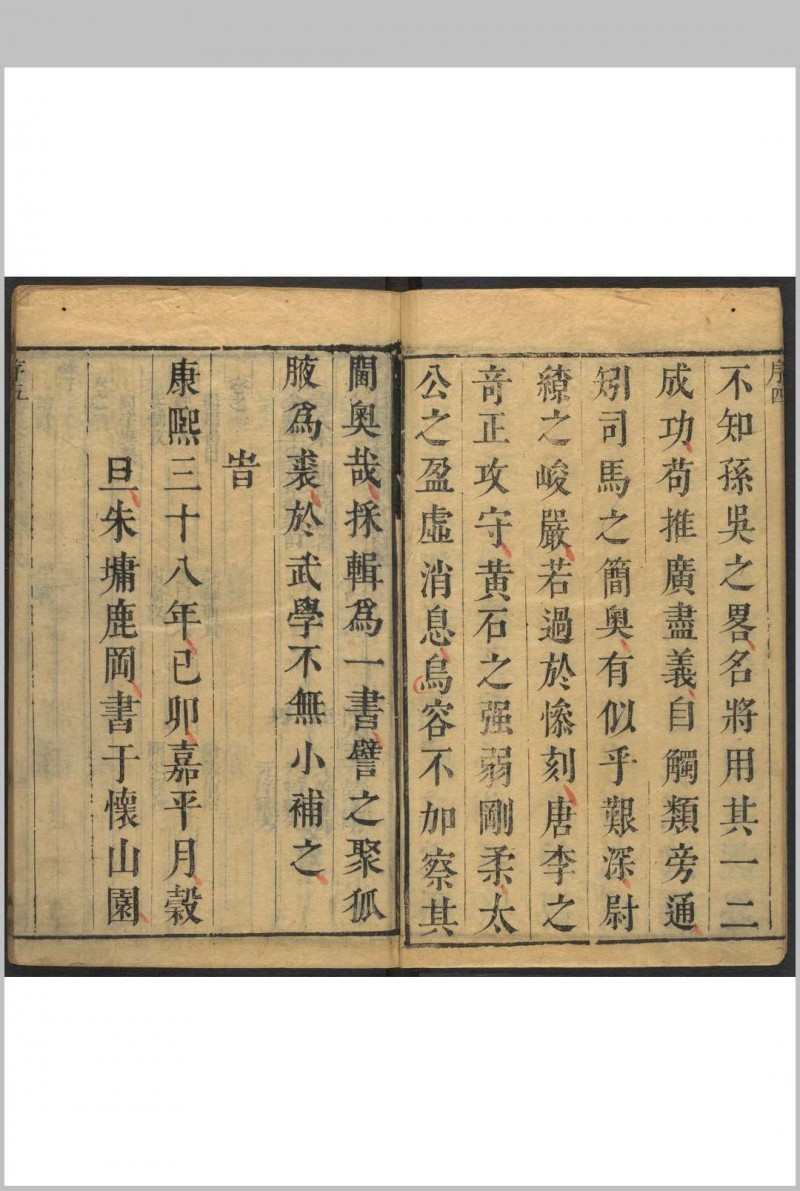 序四
不知孫吳之畧名將用其一二
成功苟推廣盡義自觸類旁通
矧司馬之簡奥有似乎艱深尉
繚之峻嚴若過於慘刻唐李之
竒正攻守黄石之强弱剛柔太
公之盈虛消息烏容不加察其
閫奥哉採輯爲一書譬之聚狐
腋爲裘於武學不無小補之
旹
康熙三十八年己卯嘉平月穀
旦朱墉鹿岡書于懷山園
序五